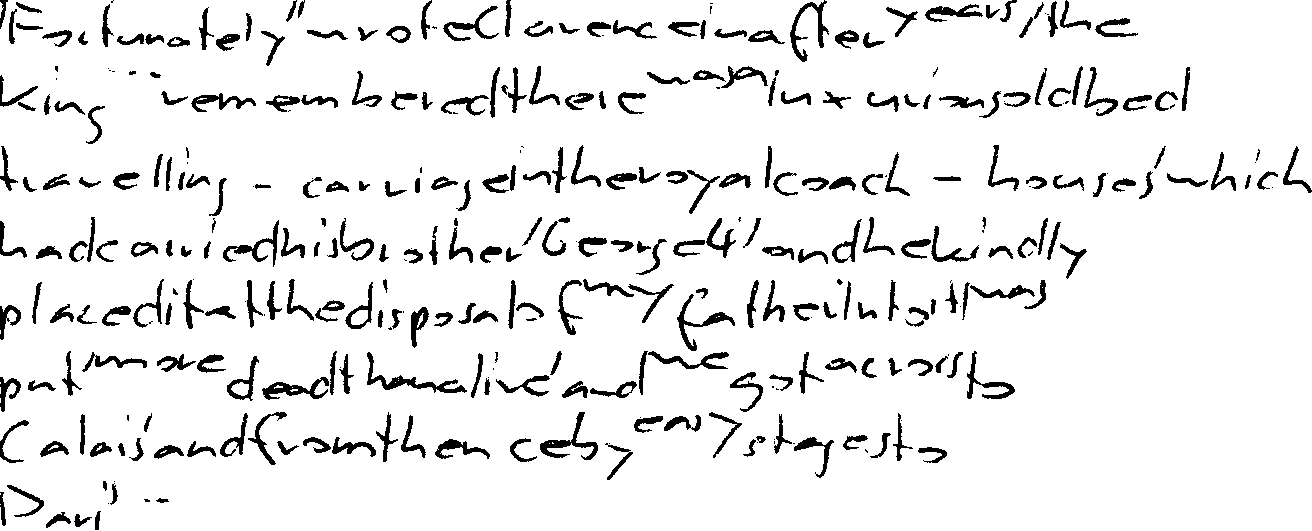 "Fortunately" wrote Clarence in after years, "the
King ... remembered there was a luxurious old bed
travelling - carriage in the royal coach - houses, which
had carried his brother, George 4, and he kindly
placed it at the disposal of my father. Into it I was
put, more dead than alive, and we got across to
Calais, and from thence by easy stages to
Paris" ...